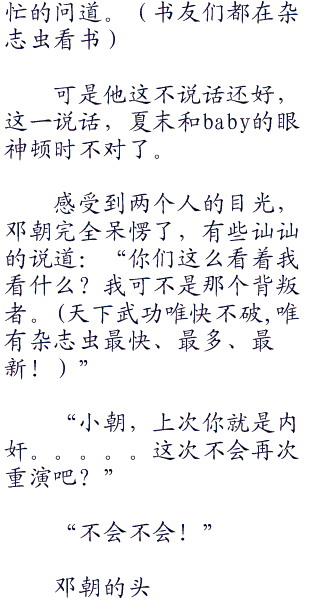 忙的问道。（书友们都在杂
志虫看书）
可是他这不说话还好，
这一说话，夏末和baby的眼
神顿时不对了。
感受到两个人的目光，
邓朝完全呆愣了，有些讪讪
的说道：“你们这么看着我
看什么？我可不是那个背叛
者。(天下武功唯快不破,唯
有杂志虫最快、最多、最
新！)”
“小朝，上次你就是内
奸。。。。。这次不会再次
重演吧？”
“不会不会！”
邓朝的头